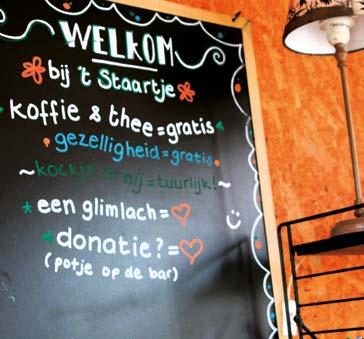 WELKOM
bij 't Staartje
koffie & thee=gratis
gezelligheid=gratis
~kockje erbij=tuurlijk!~
een glimlach=♡
donatie?=♡
(potje op de bar)